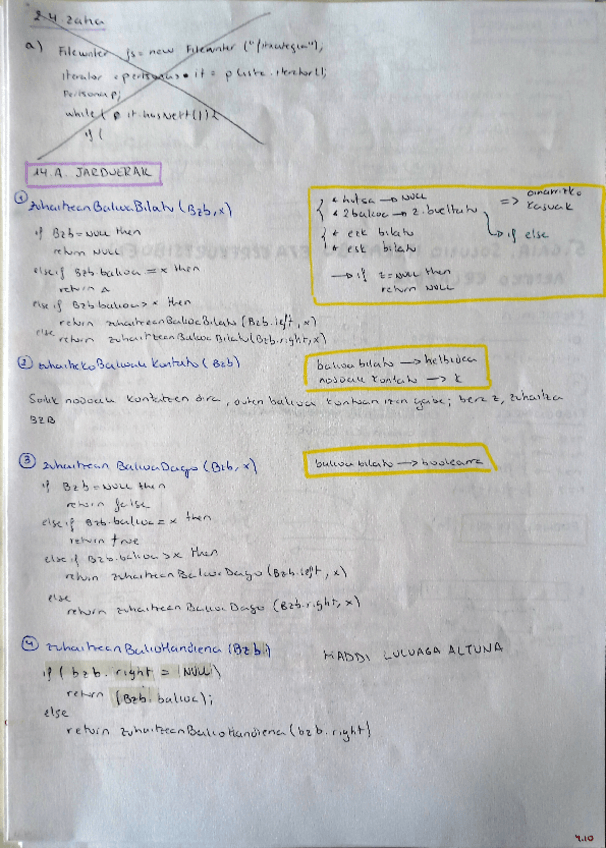 2.4. zaha
a) FileWriter fs = new FileWriter ("/strategia");
Iterator <pertsona> it = plista.iterator();
Pertsona p;
while ( it.hasNext()) {
if (
14.A. JARDUERAK
① zuhaitzean Balioa Bilatu (Bzb, x)
if Bzb = NULL then
return NULL
else if Bzb.balioa = x then
return
else if Bzb.balioa > x then
return zuhaitzeanBalioaBilatu (Bzb.left, x)
else
return zuhaitzeanBalioaBilatu (Bzb.right, x)
* hutsa → NULL
* zbalioa → z.bueltatu
=> oinarrizko kasuak
* ezk bilatu
* esk bilatu
↳ if else
→ if z = NULL then
return NULL
② zuhaitzeko Balioak Kontatu (Bzb)
balioa bilatu → helbidea
nodoak kontatu → k
Soilik nodoak kontatzen dira, duten balioa kontuan izan gabe; beraz, zuhaitza
BZB
③ zuhaitzean Balioa Dago (Bzb, x)
balioa bilatu → boolearra
if Bzb = NULL then
return false
else if Bzb.balioa = x then
return true
else if Bzb.balioa > x then
return zuhaitzean Balioa Dago (Bzb.left, x)
else
return zuhaitzean Balioa Dago (Bzb.right, x)
④ zuhaitzean Balio Handiena (Bzb)
MADDI LULUAGA ALTUNA
if ( bzb.right = NULL)
return (Bzb.balioa);
else
return zuhaitzean Balio Handiena (bzb.right)
4.10